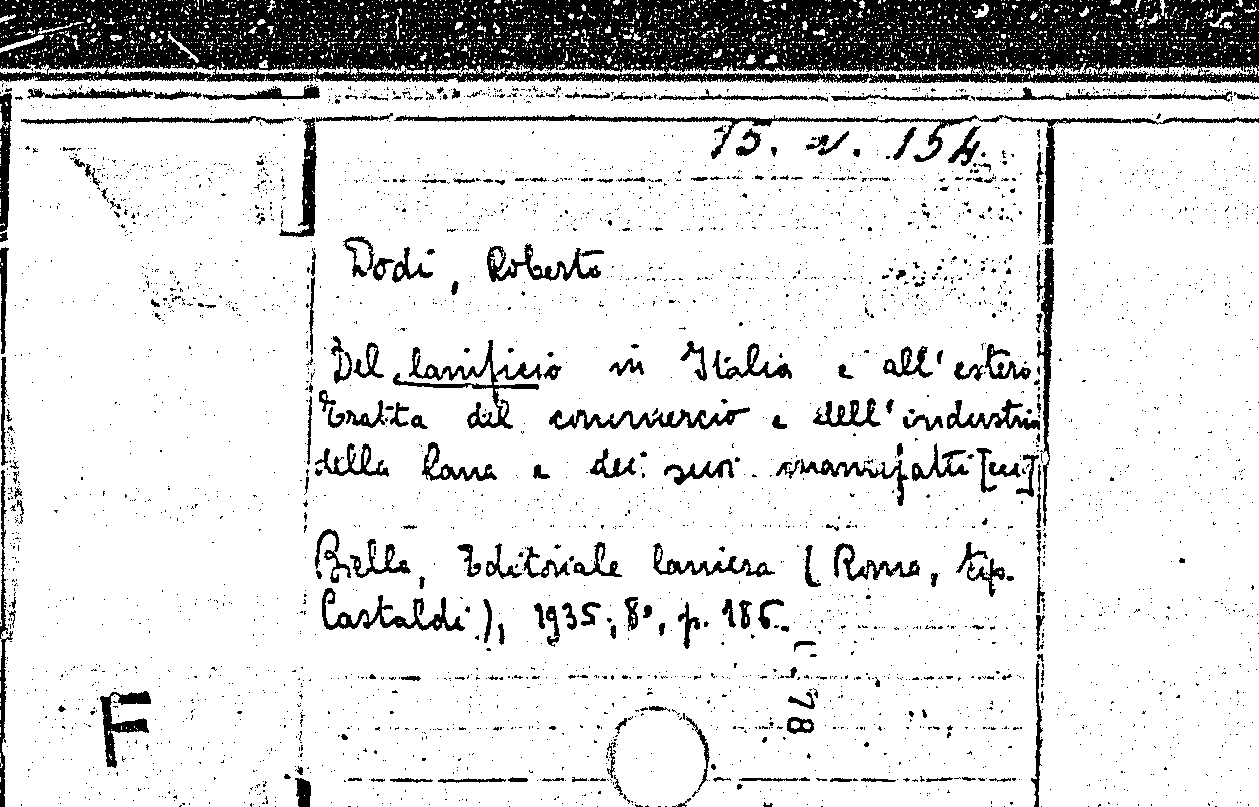 15. V. 154.
Dodi, Roberto
Del lanificio in Italia e all'estero.
Tratta del commercio e dell'industria
della lana e dei suoi manufatti [ecc]
Biella, Editoriale laniera (Roma, tip.
Castaldi), 1935, 8°, p. 186.
78
F